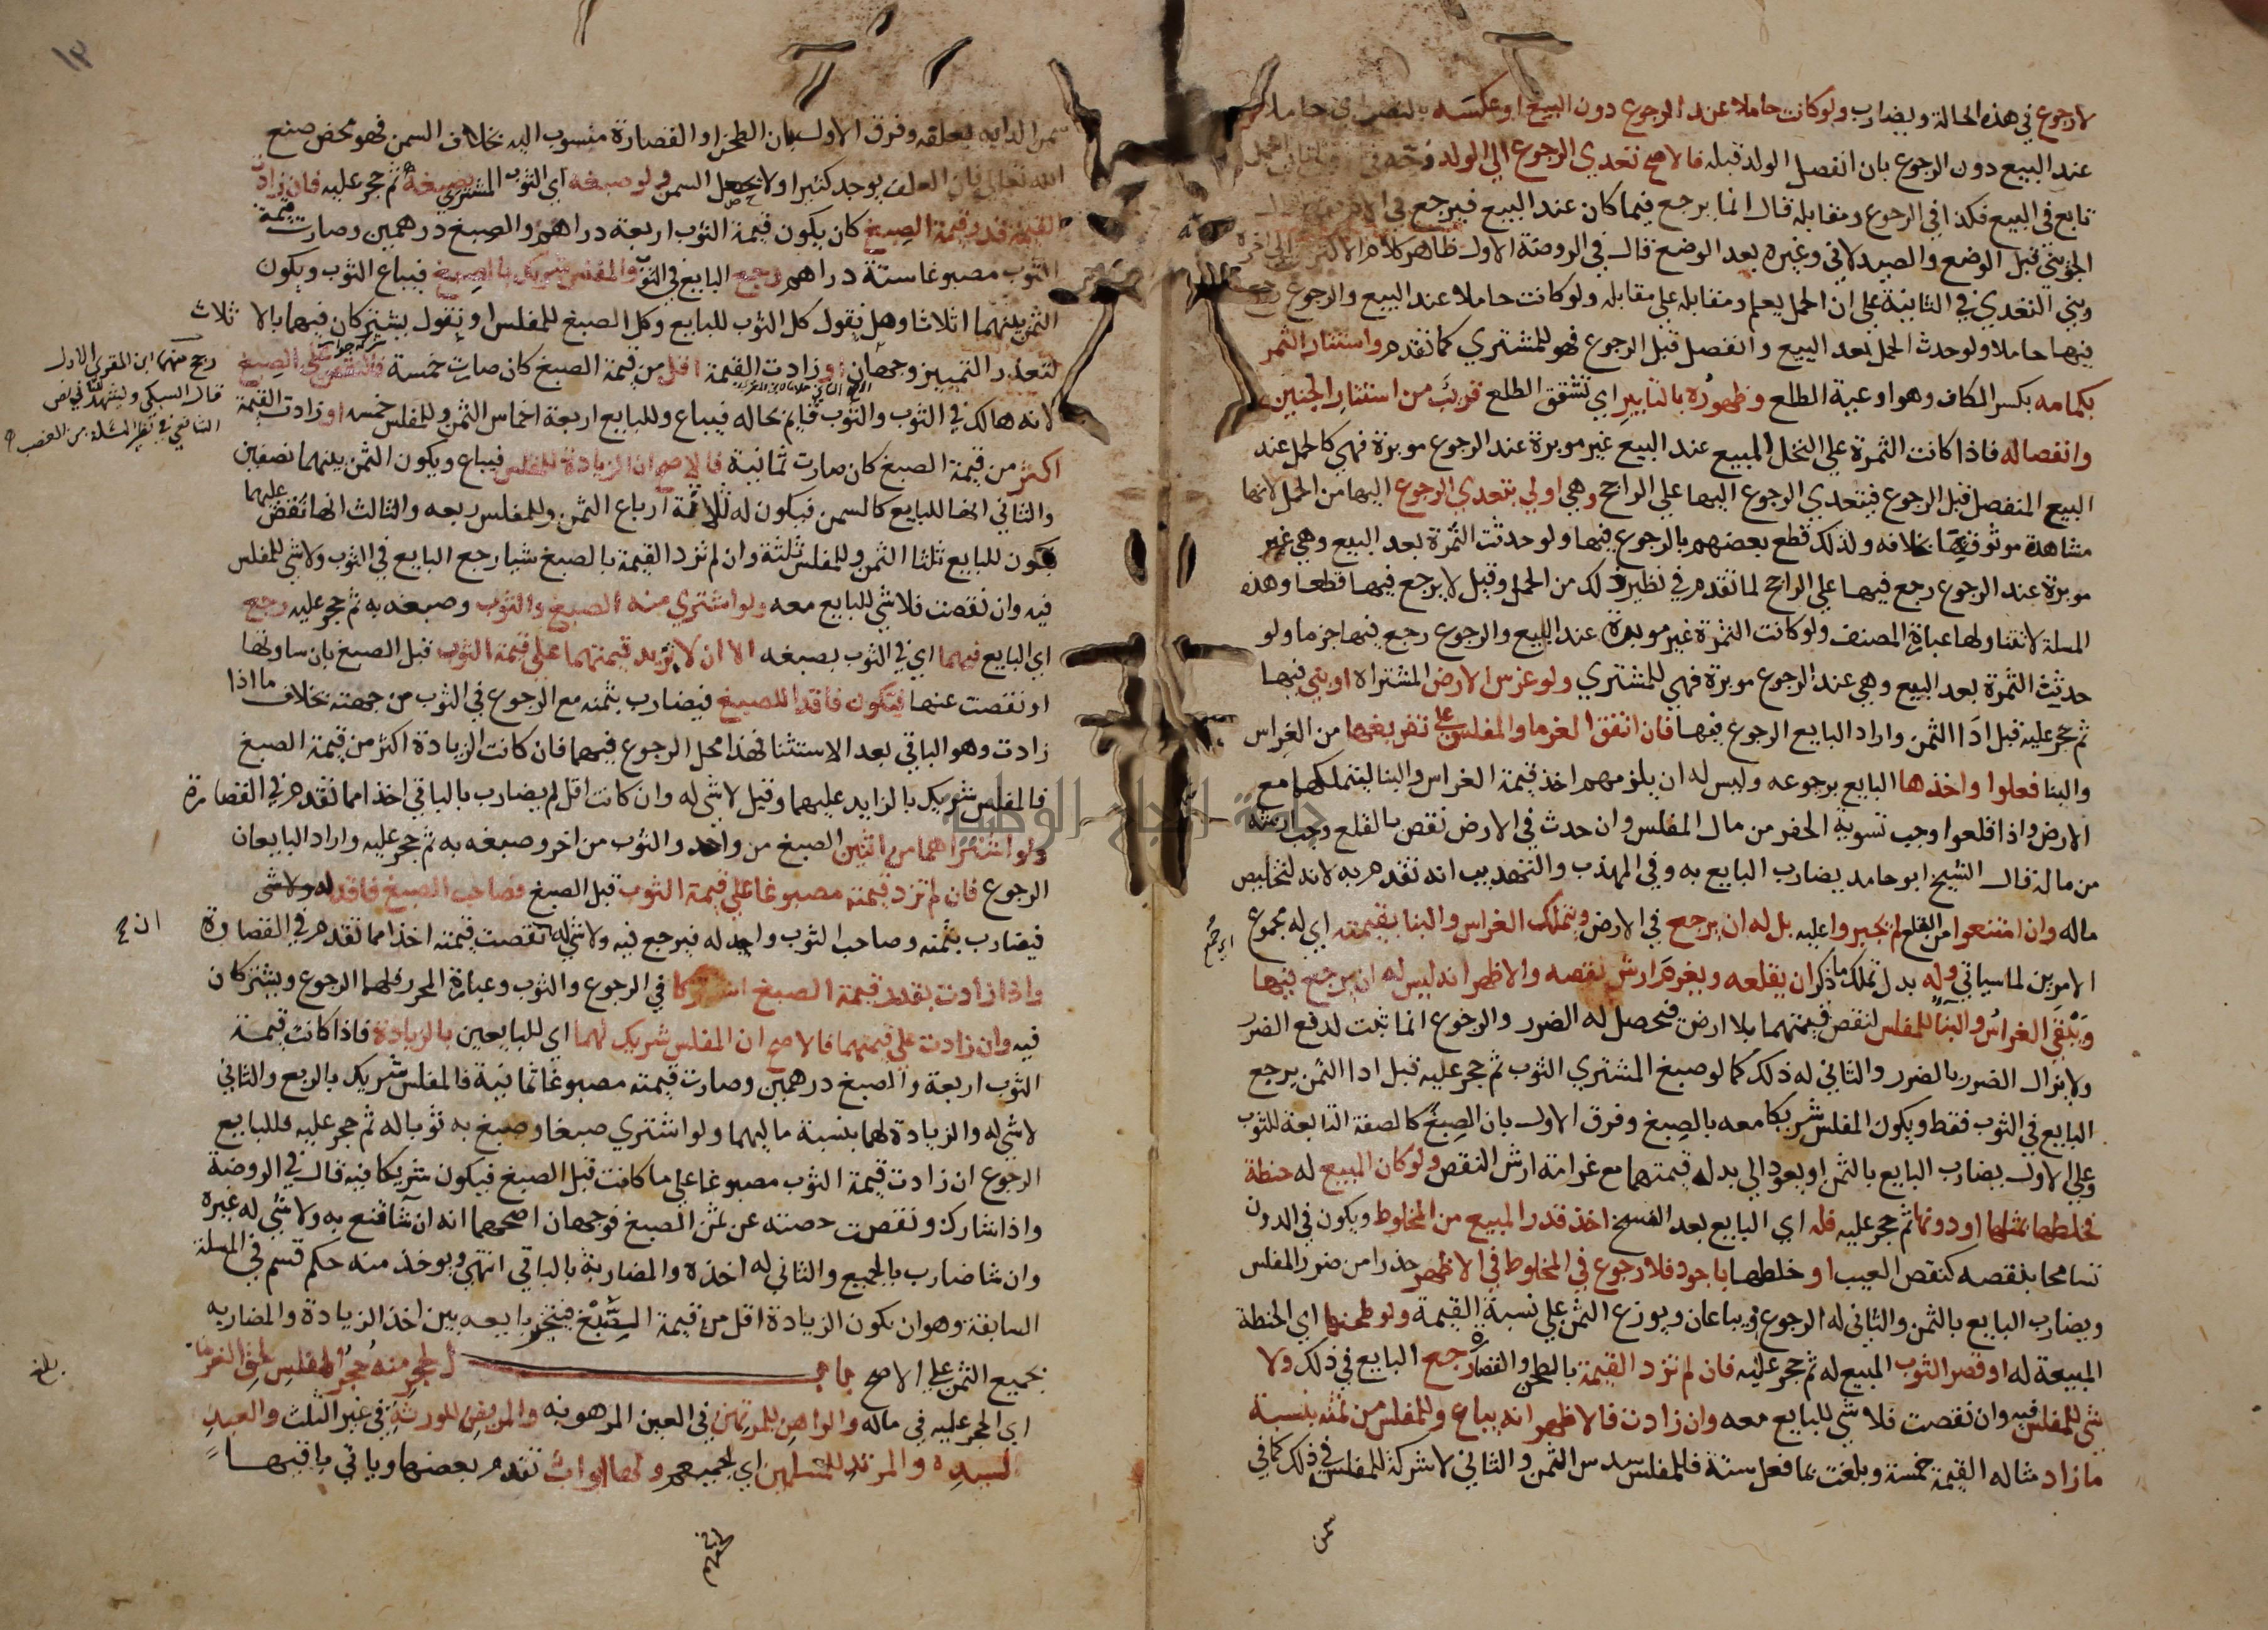 لا رجوع في هذه الحالة ويضارب ولو كانت حاملا عند الرجوع دون البيع او عكسه بالنصب اي حاملا
عند البيع دون الرجوع بان انفصل الولد قبله فالاصح تعدي الرجوع الي الولد وجهه في
تابع في البيع فكذا في الرجوع ومقابله قال انما يرجع فيما كان عند البيع فيرجع في
الجويني قبل الوضع والصيدلاني وغيره بعد الوضع قال في الروضة الاول ظاهر كلام الاكثر
وبني التعدي في الثانية علي ان الحمل يعلم ومقابله علي مقابله ولو كانت حاملا عند البيع والرجوع رجع
فيها حاملا ولو حدث الحمل بعد البيع وانفصل قبل الرجوع فهو للمشتري كما تقدم واستتار الثمر
بكمامه بكسر الكاف وهو اوعية الطلع وظهوره بالتابير اي تشقق الطلع قريب من استتار الجنين
وانفصاله فاذا كانت الثمرة علي النخل المبيع عند البيع غير موبرة عند الرجوع موبرة فهي كالحمل عند
البيع المنفصل قبل الرجوع فيتعدي الرجوع اليها علي الراجح وهي اولي بتعدي الرجوع اليها من الحمل لانها
مشاهدة موثوق بها بخلافه ولذلك قطع بعضهم بالرجوع فيها ولو حدثت الثمرة بعد البيع وهي غير
موبرة عند الرجوع رجع فيها علي الراجح لما تقدم في نظير ذلك من الحمل وقيل لا يرجع فيها قطعا وهذه
المسلة لا تتناولها عبارة المصنف ولو كانت الثمرة غير موبرة عند البيع والرجوع رجع فيها جزما ولو
حدثت الثمرة بعد البيع وهي عند الرجوع موبرة فهي للمشتري ولو غرس الارض المشتراة او بني فيها
ثم حجر عليه قبل ادا الثمن واراد البايع الرجوع فيها فان اتفق الغرما والمفلس علي تفريغها من الغراس
والبنا فعلوا واخذها البايع برجوعه وليس له ان يلزمهم اخذ قيمة الغراس والبنا ليتملكها مع
الارض واذا قلعوا وجب تسوية الحفر من مال المفلس وان حدث في الارض نقص بالقلع وجب ارشه
من ماله قال الشيخ ابو حامد يضارب البايع به وفي المهذب والتهذيب انه تقدم به لانه لتخليص
ماله وان امتنعوا من القلع لم يجبروا عليه بل له ان يرجع في الارض ويتملك الغراس والبنا بقيمته اي له مجموع
الامرين لما سياتي وله بدل تملك ما ذكر ان يقلعه ويغرم ارش نقصه والاظهر انه ليس له ان يرجع فيها
ويبقي الغراس والبنا للمفلس لنقص قيمتهما بلا ارض فيحصل له الضرر والرجوع انما ثبت لدفع الضرر
ولا يزال الضرر بالضرر والثاني له ذلك كما لو صبغ المشتري الثوب ثم حجر عليه قبل ادا الثمن يرجع
البايع في الثوب فقط ويكون المفلس شريكا معه بالصبغ وفرق الاول بان الصبغ كالصفة التابعة للثوب
وعلي الاول يضارب البايع بالثمن او يعود الي بدله قيمتهما مع غرامة ارش النقص ولو كان المبيع له حنطة
فخلطها بمثلها او دونها ثم حجر عليه فله اي البايع بعد الفسخ اخذ قدر المبيع من المخلوط ويكون في الدون
تسامحا بنقصه كنقص العيب او خلطها باجود فلا رجوع في المخلوط في الاظهر حذرا من ضرر المفلس
ويضارب البايع بالثمن والثاني له الرجوع ويباعان ويوزع الثمن علي نسبة القيمة ولو طحنها اي الحنطة
المبيعة له او قصر الثوب المبيع له ثم حجر عليه فان لم تزد القيمة بالطحن والقصارة رجع البايع في ذلك ولا
شي للمفلس فيه وان نقصت فلا شي للبايع معه وان زادت فالاظهر انه يباع وللمفلس من ثمنه بنسبة
ما زاد مثاله القيمة خمسة وبلغت بما فعل ستة فللمفلس سدس الثمن والثاني لا شركة للمفلس في ذلك كما في
سمن
سمن الدابة بعلفه وفرق الاول بان الطحن او القصارة منسوب اليه بخلاف السمن فهو محض صنع
الله تعالي فان العلف يوجد كثيرا ولا يحصل السمن ولو صبغه اي الثوب المشتري بصبغه ثم حجر عليه فان زادت
القيمة قدر قيمة الصبغ كان يكون قيمة الثوب اربعة دراهم والصبغ درهمين وصارت قيمة
الثوب مصبوغا ستة دراهم رجع البايع في الثوب والمفلس شريك بالصبغ فيباع الثوب ويكون
الثمن بينهما اثلاثا وهل يقول كل الثوب للبايع وكل الصبغ للمفلس او نقول يشتركان فيهما بالاثلاث
لتعذر التمييز وجهان او زادت القيمة اقل من قيمة الصبغ كان صارت خمسة فالنقص علي الصبغ
لانه هالك في الثوب والثوب قايم بحاله فيباع وللبايع اربعة اخماس الثمن وللمفلس خمس او زادت القيمة
اكثر من قيمة الصبغ كان صارت ثمانية فالاصح ان الزيادة للمفلس فيباع ويكون الثمن بينهما نصفين
والثاني انها للبايع كالسمن فيكون له ثلاثة ارباع الثمن وللمفلس ربعه والثالث انها تفض عليهما
فيكون للبايع ثلثا الثمن وللمفلس ثلثه وان لم تزد القيمة بالصبغ شيا رجع البايع في الثوب ولا شي للمفلس
فيه وان نقصت فلا شي للبايع معه ولو اشتري منه الصبغ والثوب وصبغه به ثم حجر عليه رجع
اي البايع فيهما اي في الثوب بصبغه الا ان لا تزيد قيمتهما علي قيمة الثوب قبل الصبغ بان ساوتها
او نقصت عنها فيكون فاقدا للصبغ فيضارب بثمنه مع الرجوع في الثوب من جهته بخلاف ما اذا
زادت وهو الباقي بعد الاستثنا فهذا محل الرجوع فيهما فان كانت الزيادة اكثر من قيمة الصبغ
فالمفلس شريك بالزايد عليهما وقيل لا شي له وان كانت اقل لم يضارب بالباقي اخذا مما تقدم في القصارة
ولو اشتراهما من اثنين الصبغ من واحد والثوب من اخر وصبغه به ثم حجر عليه واراد البايعان
الرجوع فان لم تزد قيمته مصبوغا علي قيمة الثوب قبل الصبغ فصاحب الصبغ فاقد له
فيضارب بثمنه وصاحب الثوب واجد له فيرجع فيه ولا شي له ان نقصت قيمته اخذا مما تقدم في القصارة
واذا زادت بقدر قيمة الصبغ اشتركا في الرجوع والثوب وعبارة المحرر فلهما الرجوع ويشتركان
فيه وان زادت علي قيمتهما فالاصح ان المفلس شريك لهما اي للبايعين بالزيادة فاذا كانت قيمة
الثوب اربعة والصبغ درهمين وصارت قيمته مصبوغا ثمانية فالمفلس شريك بالربع والثاني
لا شي له والزيادة لهما بنسبة ماليهما ولو اشتري صبغا وصبغ به ثوبا له ثم حجر عليه فللبايع
الرجوع ان زادت قيمة الثوب مصبوغا علي ما كانت قبل الصبغ فيكون شريكا فيه قال في الروضة
واذا شارك ونقصت حصته عن ثمن الصبغ فوجهان اصحهما انه ان شا قنع به ولا شي له غيره
وان شا ضارب بالجميع والثاني له اخذه والمضاربة بالباقي انتهي ويوخذ منه حكم قسم في المسلة
السابقة وهو ان يكون الزيادة اقل من قيمة الصبغ فيتخير بايعه بين اخذ الزيادة والمضاربه
بجميع الثمن علي الاصح باب الحجر منه حجر المفلس لحق الغرما
اي الحجر عليه في ماله والراهن للمرتهن في العين المرهونة والمريض للورثة في غير الثلث والعبد
لسيده والمرتد للمسلمين اي لجميعهم ولها ابواب تقدم بعضها وياتي باقيها
رجح منهما ابن المقري الاول
قال السبكي ويشهد له نص
الشافعي في نظير المسلة من الغصب
بلغ
١٣
جامعة النجاح الوطنية